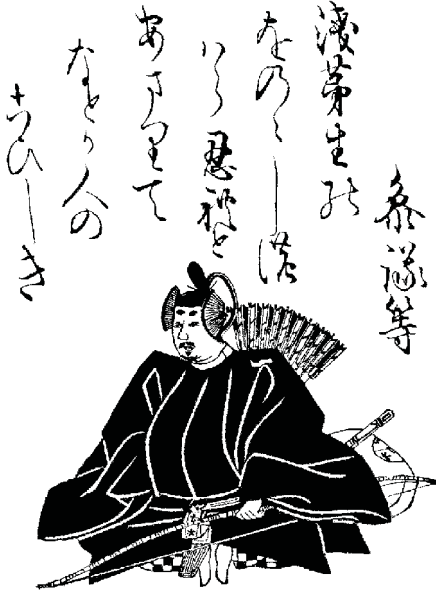 参議等
浅茅生の
をのゝしの
はら忍れと
あまりて
なとか人の
こひしき